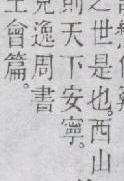 之世是也。西山
則天下安寧。
見逸周書
王會篇。